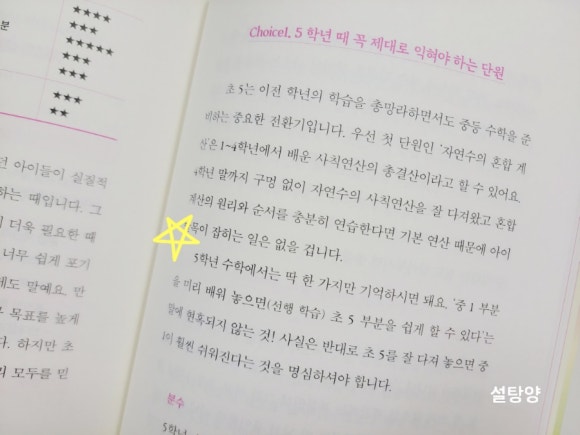 분
★★★★
★★★★★
★★★★
★★★
★★★
★★★
★★
던 아이들이 실질적
하는 때입니다. 그
이 더욱 필요한 때
너무 쉽게 포기
데도 말예요. 만
목표를 높게
다. 하지만 초
리 모두를 믿
Choice1. 5학년 때 꼭 제대로 익혀야 하는 단원
초5는 이전 학년의 학습을 총망라하면서도 중등 수학을 준
비하는 중요한 전환기입니다. 우선 첫 단원인 '자연수의 혼합 계
산'은 1~4학년에서 배운 사칙연산의 총결산이라고 할 수 있어요.
4학년 말까지 구멍 없이 자연수의 사칙연산을 잘 다져왔고 혼합
계산의 원리와 순서를 충분히 연습한다면 기본 연산 때문에 아이
목이 잡히는 일은 없을 겁니다.
5학년 수학에서는 딱 한 가지만 기억하시면 돼요. '중1 부분
을 미리 배워 놓으면(선행 학습) 초5 부분을 쉽게 할 수 있다'는
말에 현혹되지 않는 것! 사실은 반대로 초5를 잘 다져 놓으면 중
1이 훨씬 쉬워진다는 것을 명심하셔야 합니다.
분수
5학년
설탕양